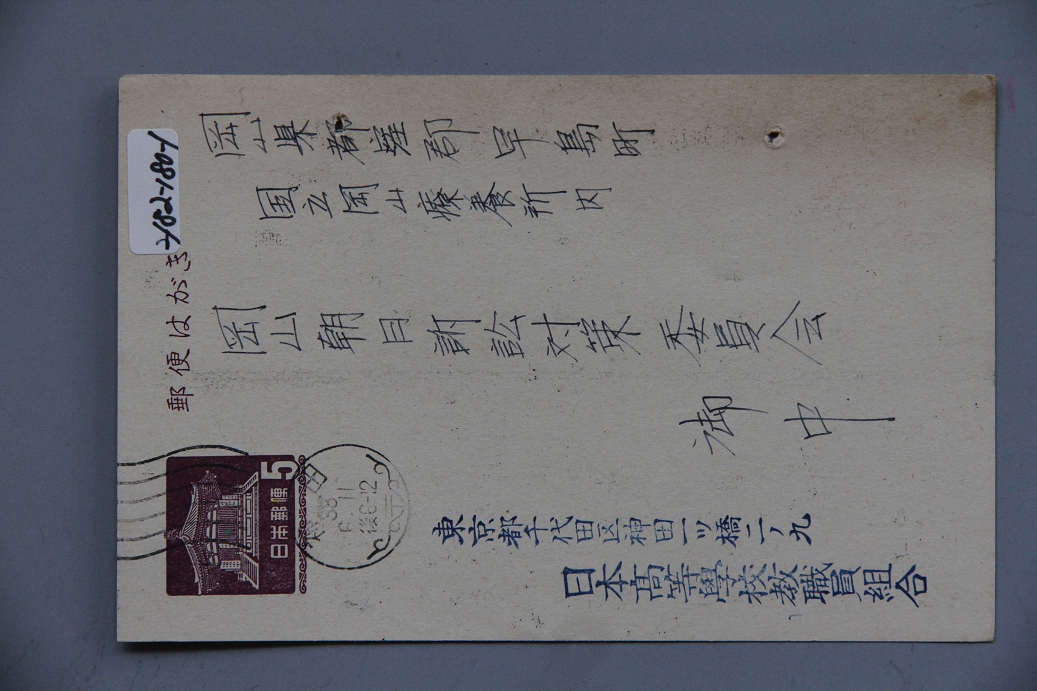 7-82-1801
郵便はがき
5
日本郵便
岡山県都窪郡早島町
国立岡山療養所内
岡山朝日訴訟対策委員会
御中
東京都千代田区神田一ツ橋二ノ九
日本高等學校教職員組合